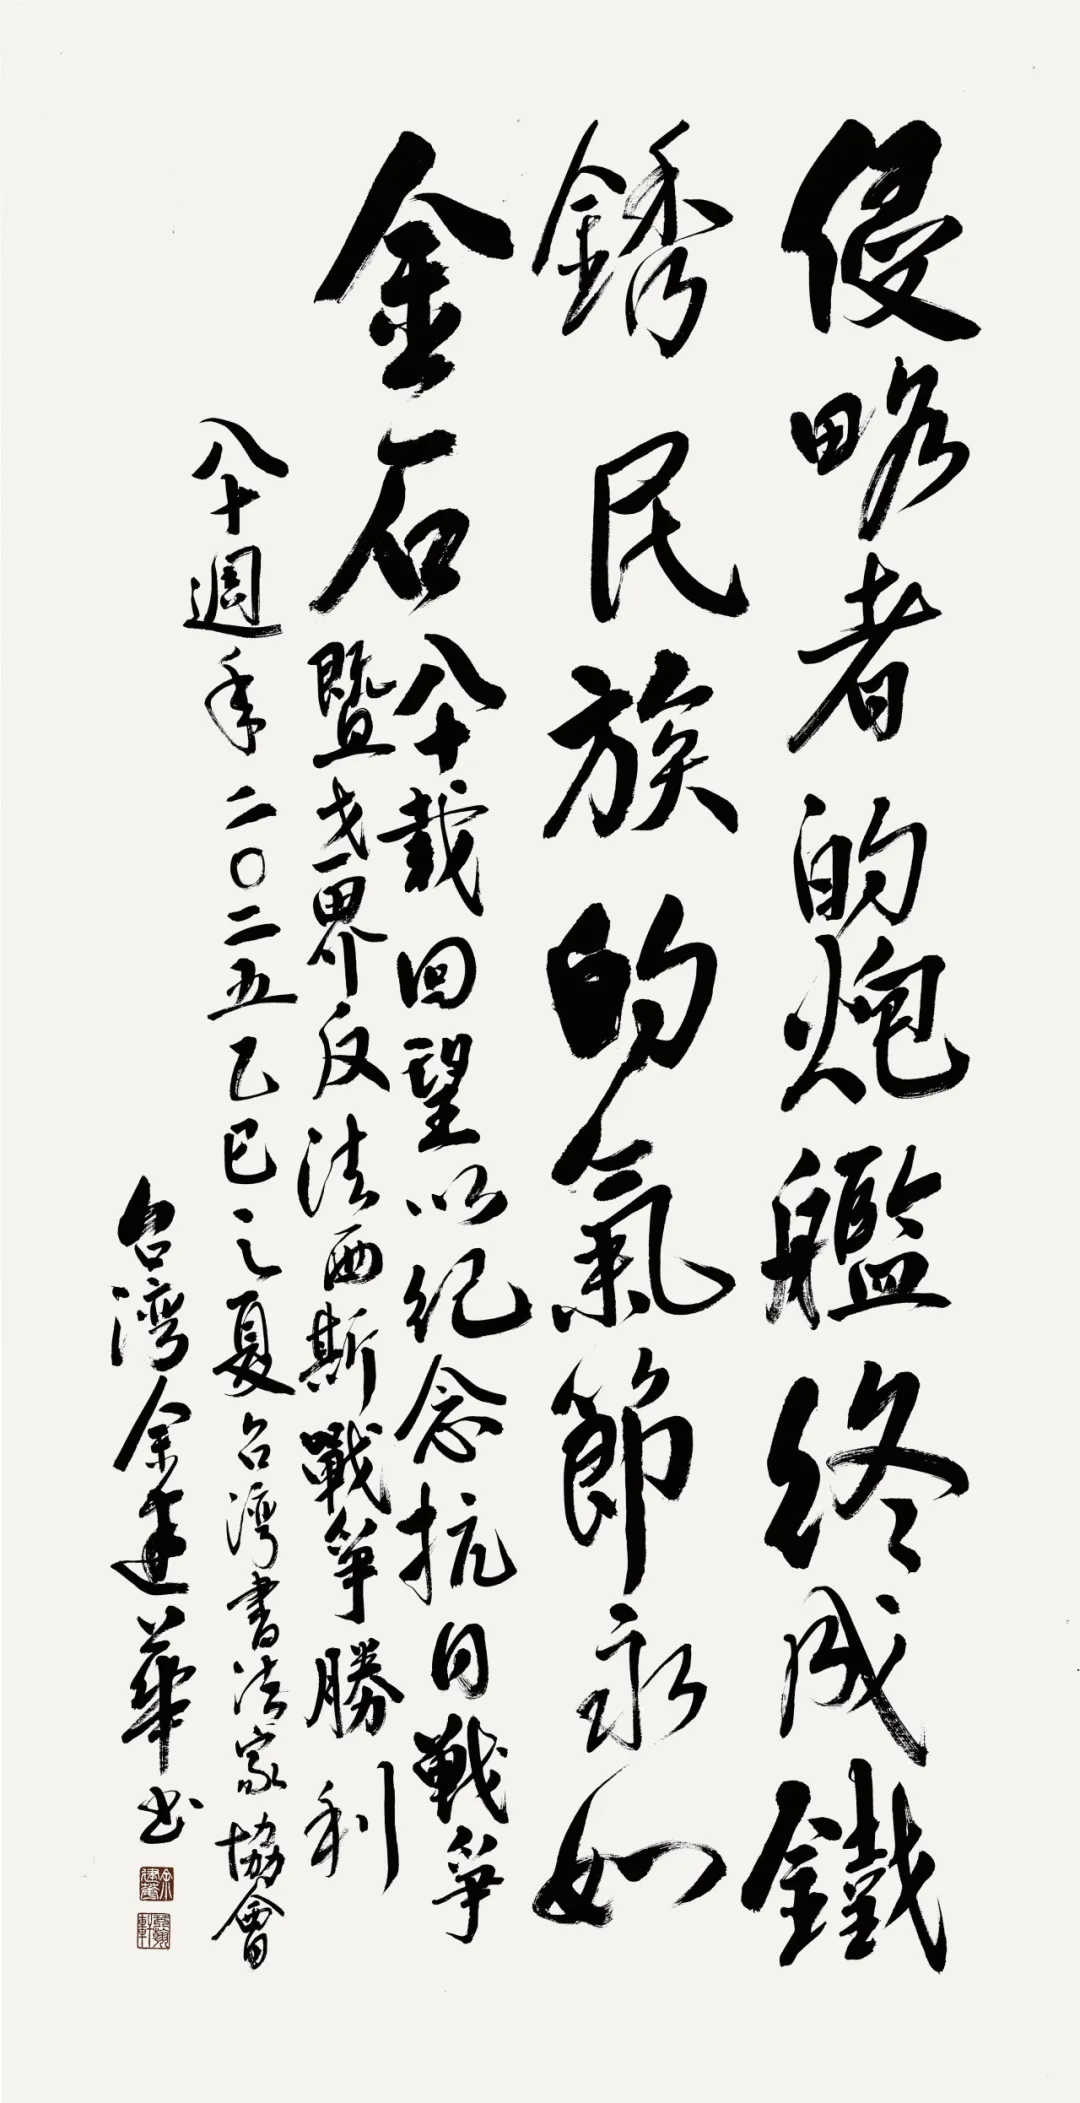 侵略者的炮艦終成鐵
銹民族的氣節永如
金石
八十載回望以紀念抗日戰爭
暨世界反法西斯戰爭勝利
八十週年二〇二五乙巳之夏台湾書法家協會
台湾余建華书
余建華